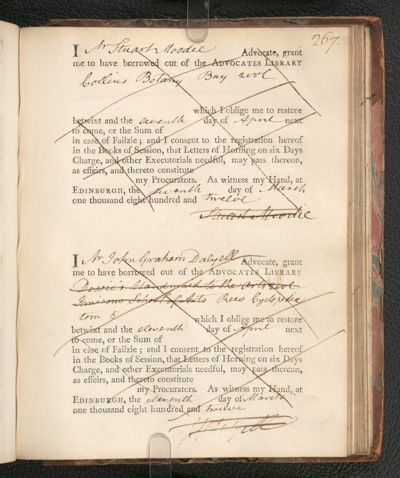 267.
I Mr Stuart Moodie Advocate, grant
me to have borrowed out of the ADVOCATES LIBRARY
Collins Botany Bay 2 vol
which I oblige me to restore
betwixt and the seventh day of April next
to come, or the Sum of
in case of Failzie; and I consent to the registration hereof
in the Books of Session, that Letters of Horning on six Days
Charge, and other Executorials needful, may pass thereon,
as effeirs, and thereto constitute
my Procurators. As witness my Hand, at
EDINBURGH, the seventh day of March
one thousand eight hundred and twelve
Stuart Moodie
I Mr John Graham Dalyell Advocate, grant
me to have borrowed out of the ADVOCATES LIBRARY
Dossie's Handmaid to the Arts 2 vol
School of Arts Rees Cyclopedia
tom 3 which I oblige me to restore
betwixt and the eleventh day of April next
to come, or the Sum of
in case of Failzie; and I consent to the registration hereof
in the Books of Session, that Letters of Horning on six Days
Charge, and other Executorials needful, may pass thereon,
as effeirs, and thereto constitute
my Procurators. As witness my Hand, at
EDINBURGH, the eleventh day of March
one thousand eight hundred and twelve